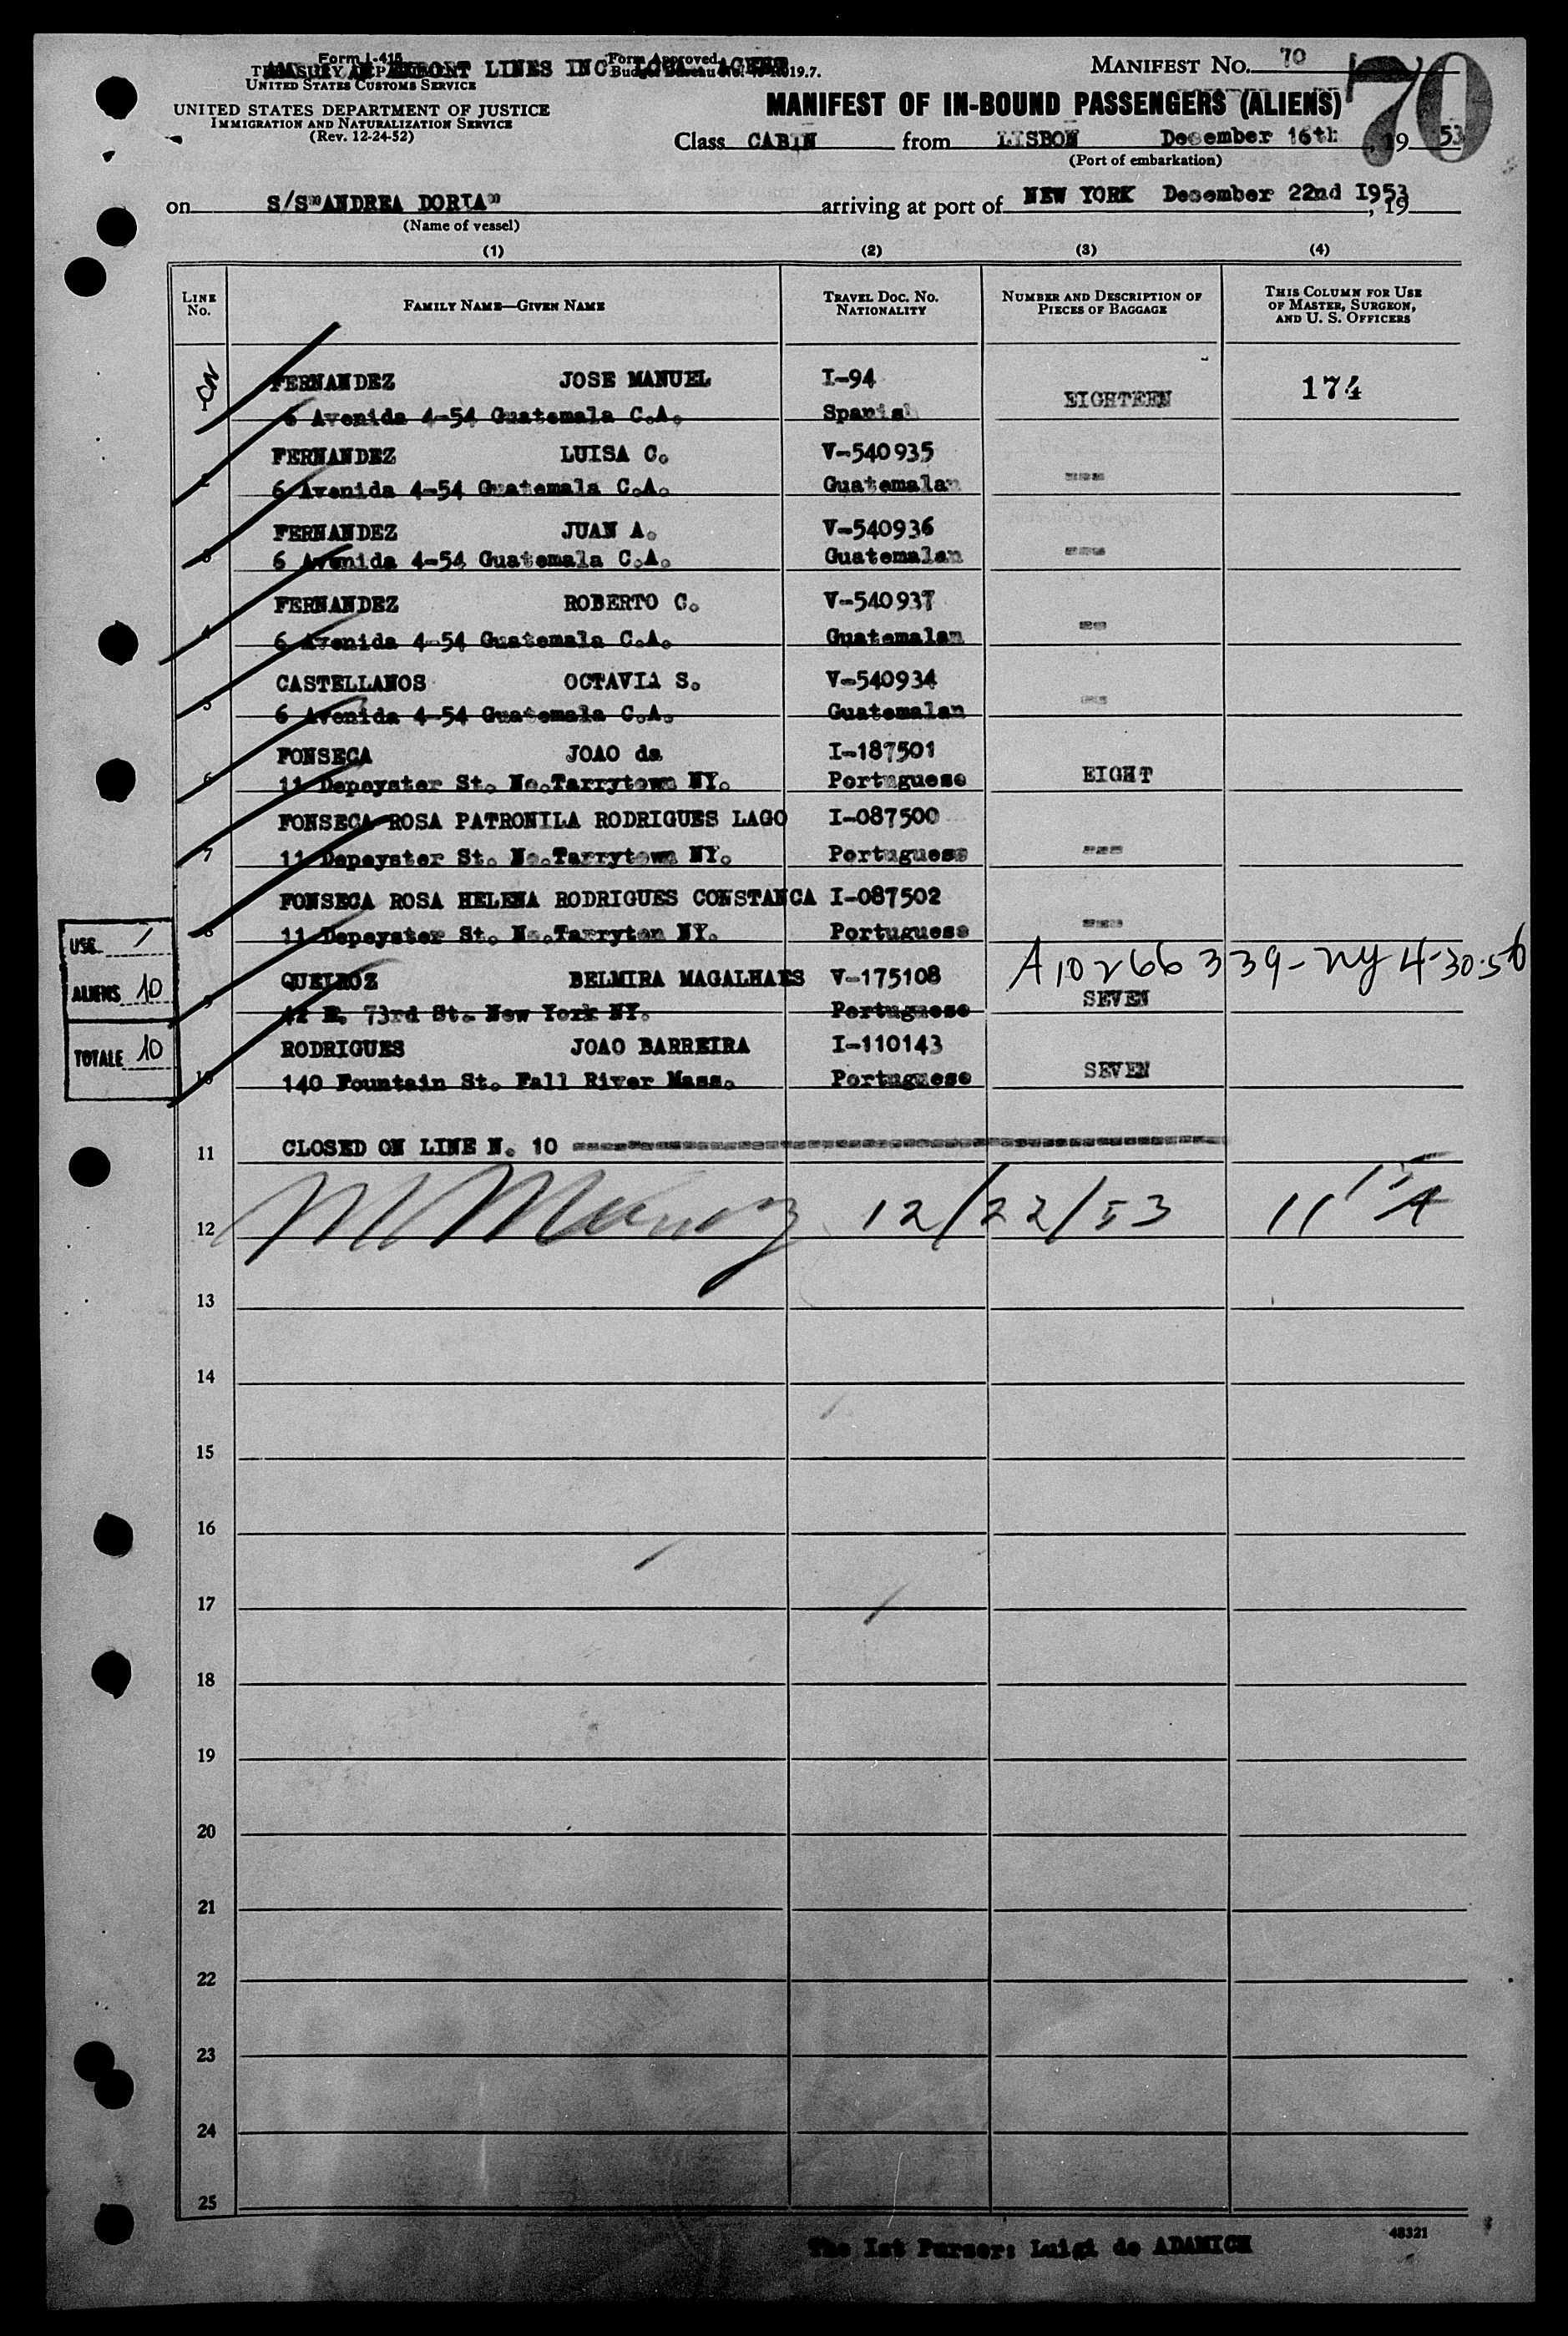 Form I-415
UNITED STATES CUSTOMS SERVICE
Form Approved
LINES INC
19.7.
MANIFEST NO. 70
70
UNITED STATES DEPARTMENT OF JUSTICE
IMMIGRATION AND NATURALIZATION SERVICE
(Rev. 12-24-52)
MANIFEST OF IN-BOUND PASSENGERS (ALIENS)
Class CABIN from LISBON December 16th, 1953
(Port of embarkation)
on S/S"ANDREA DORIA" arriving at port of NEW YORK December 22nd 1953, 19
(Name of vessel)
(1) (2) (3) (4)
LINE No. FAMILY NAME—GIVEN NAME TRAVEL DOC. NO. NATIONALITY NUMBER AND DESCRIPTION OF PIECES OF BAGGAGE THIS COLUMN FOR USE OF MASTER, SURGEON, AND U. S. OFFICERS
FERNANDEZ JOSE MANUEL I-94 EIGHTEEN 174
6 Avenida 4-54 Guatemala C.A. Spanish
FERNANDEZ LUISA C. V-540935
6 Avenida 4-54 Guatemala C.A. Guatemalan ---
FERNANDEZ JUAN A. V-540936
3 6 Avenida 4-54 Guatemala C.A. Guatemalan ---
FERNANDEZ ROBERTO C. V-540937
4 6 Avenida 4-54 Guatemala C.A. Guatemalan ---
CASTELLANOS OCTAVIA S. V-540934
5 6 Avenida 4-54 Guatemala C.A. Guatemalan ---
FONSECA JOAO da I-187501
6 11 Depeyster St. No.Tarrytown NY. Portuguese EIGHT
FONSECA ROSA PATRONILA RODRIGUES LAGO I-087500
7 11 Depeyster St. No.Tarrytown NY. Portuguese ---
FONSECA ROSA HELENA RODRIGUES CONSTANCA I-087502
8 11 Depeyster St. No.Tarryton NY. Portuguese ---
A10266339-NY 4-30-56
QUEIROZ BELMIRA MAGALHAES V-175108 SEVEN
9 42 E. 73rd St. New York NY. Portuguese
RODRIGUES JOAO BARREIRA I-110143 SEVEN
10 140 Fountain St. Fall River Mass. Portuguese
USC /
ALIENS 10
TOTALE 10
11 CLOSED ON LINE N. 10
12 12/22/53 11 15 A
13
14
15
16
17
18
19
20
21
22
23
24
25
The 1st Purser: Luigi de ADAMICH
48321